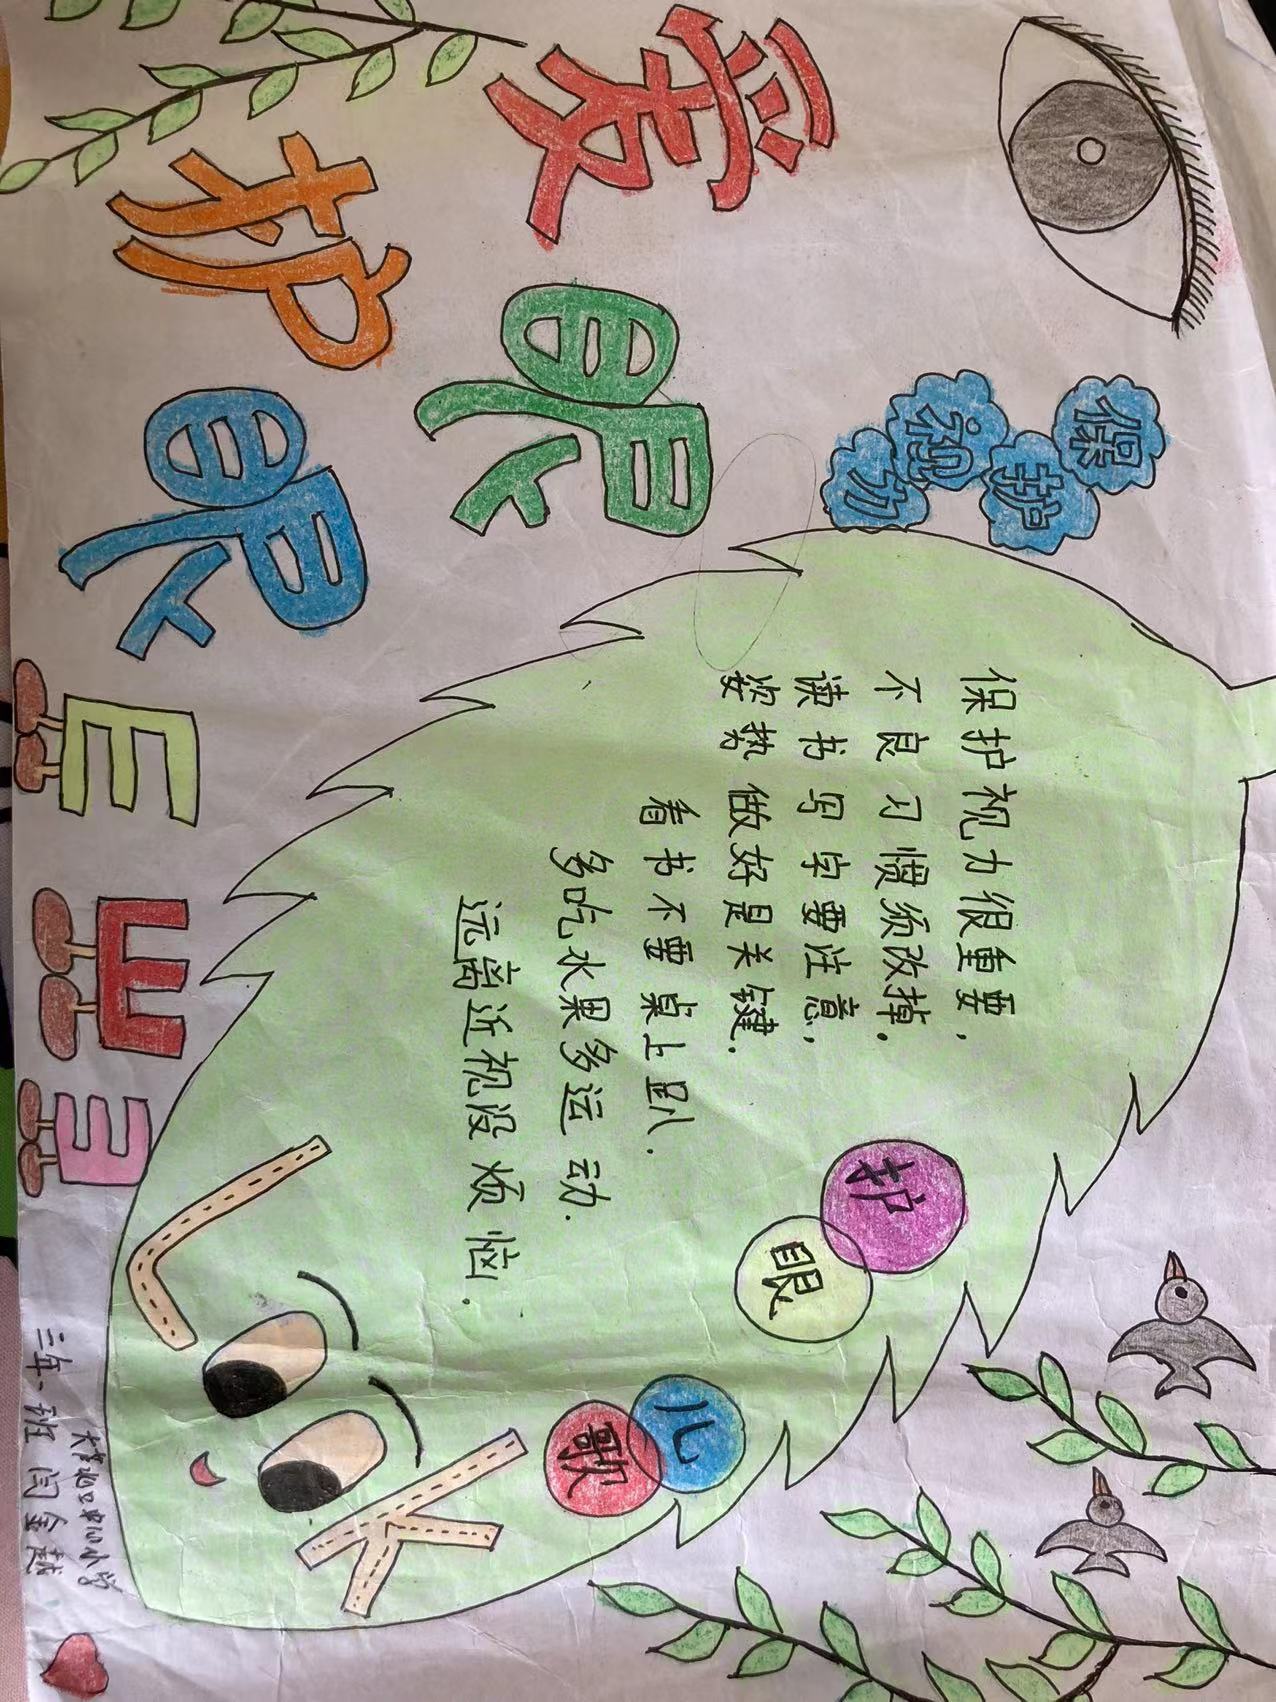 爱眼
护眼
保护视力
保护视力很重要，
不良习惯须改掉。
读书写字要注意，
姿势做好是关键.
看书不要桌上趴.
多吃水果多运动.
远离近视没烦恼.
护眼
儿歌
E
E
E
三年一班 闫金越